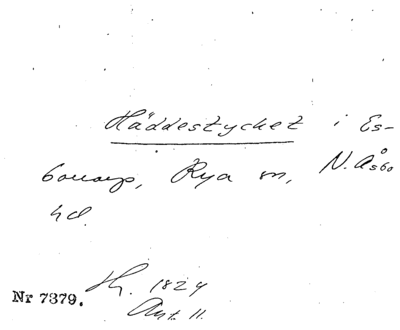 Häddestycket i Es-
bonarp, Rya sn, N. Åsbo
hd.
Nr 7379. Hy. 1824
Akt 11.